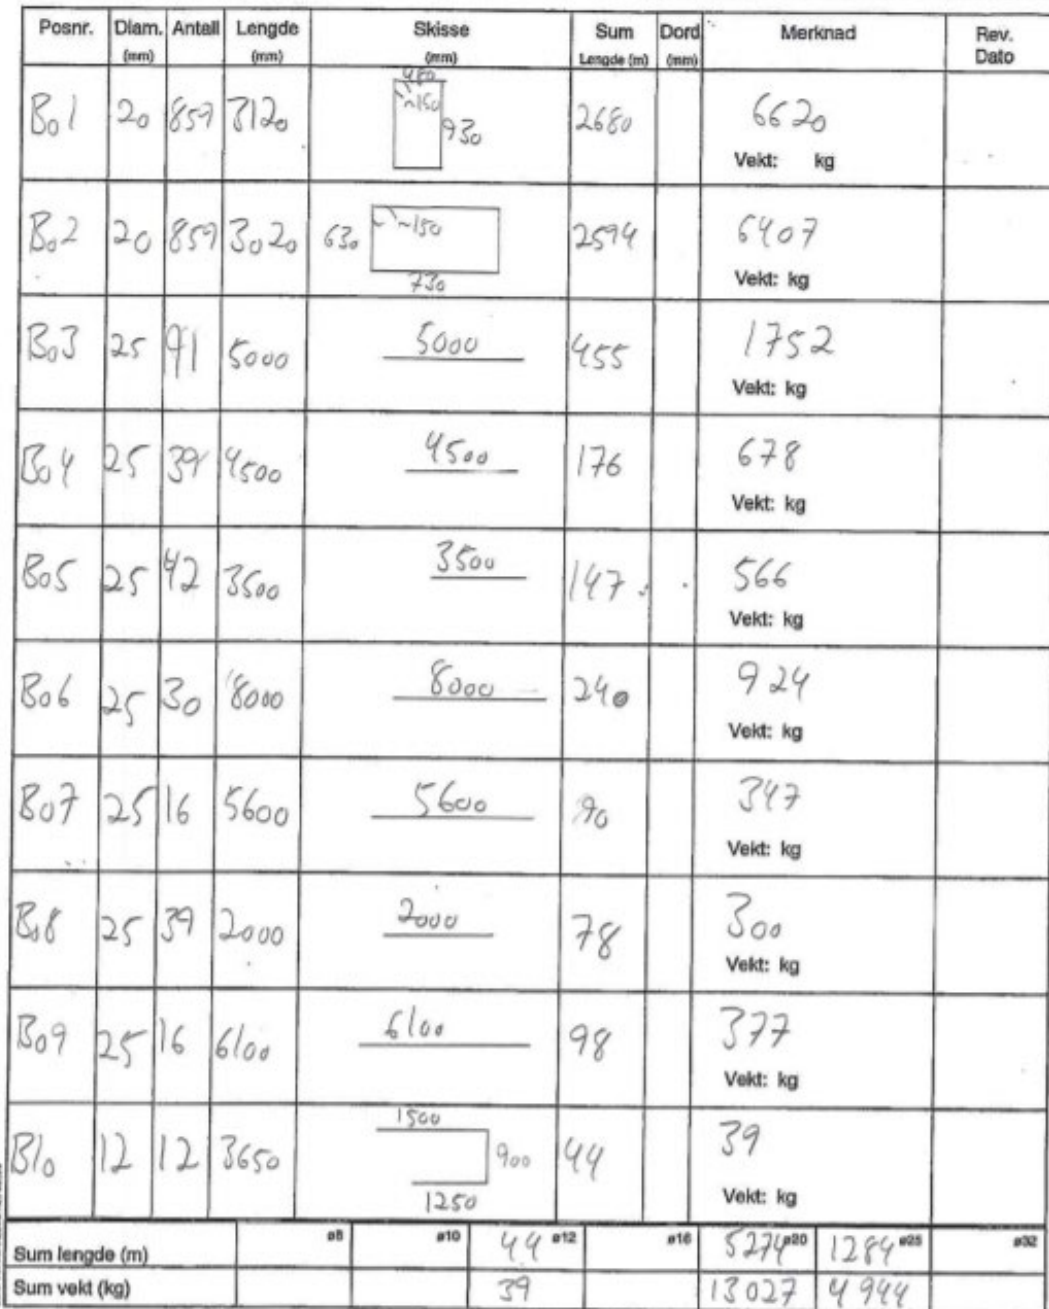 Posnr. Diam. (mm) Antall Lengde (mm) Skisse (mm) Sum Lengde (m) Dord (mm) Merknad Rev. Dato
B01 20 859 3120 480 ~150 930 2680 6620
Vekt: kg
B02 20 859 3020 630 ~150 730 2594 6407
Vekt: kg
B03 25 91 5000 5000 455 1752
Vekt: kg
B04 25 39 4500 4500 176 678
Vekt: kg
B05 25 42 3500 3500 147 566
Vekt: kg
B06 25 30 8000 8000 240 924
Vekt: kg
B07 25 16 5600 5600 90 347
Vekt: kg
B08 25 39 2000 2000 78 300
Vekt: kg
B09 25 16 6100 6100 98 377
Vekt: kg
B10 12 12 3650 1500 900 1250 44 39
Vekt: kg
Sum lengde (m) ø8 ø10 44 ø12 ø16 5274 ø20 1284 ø25 ø32
Sum vekt (kg) 39 13027 4944